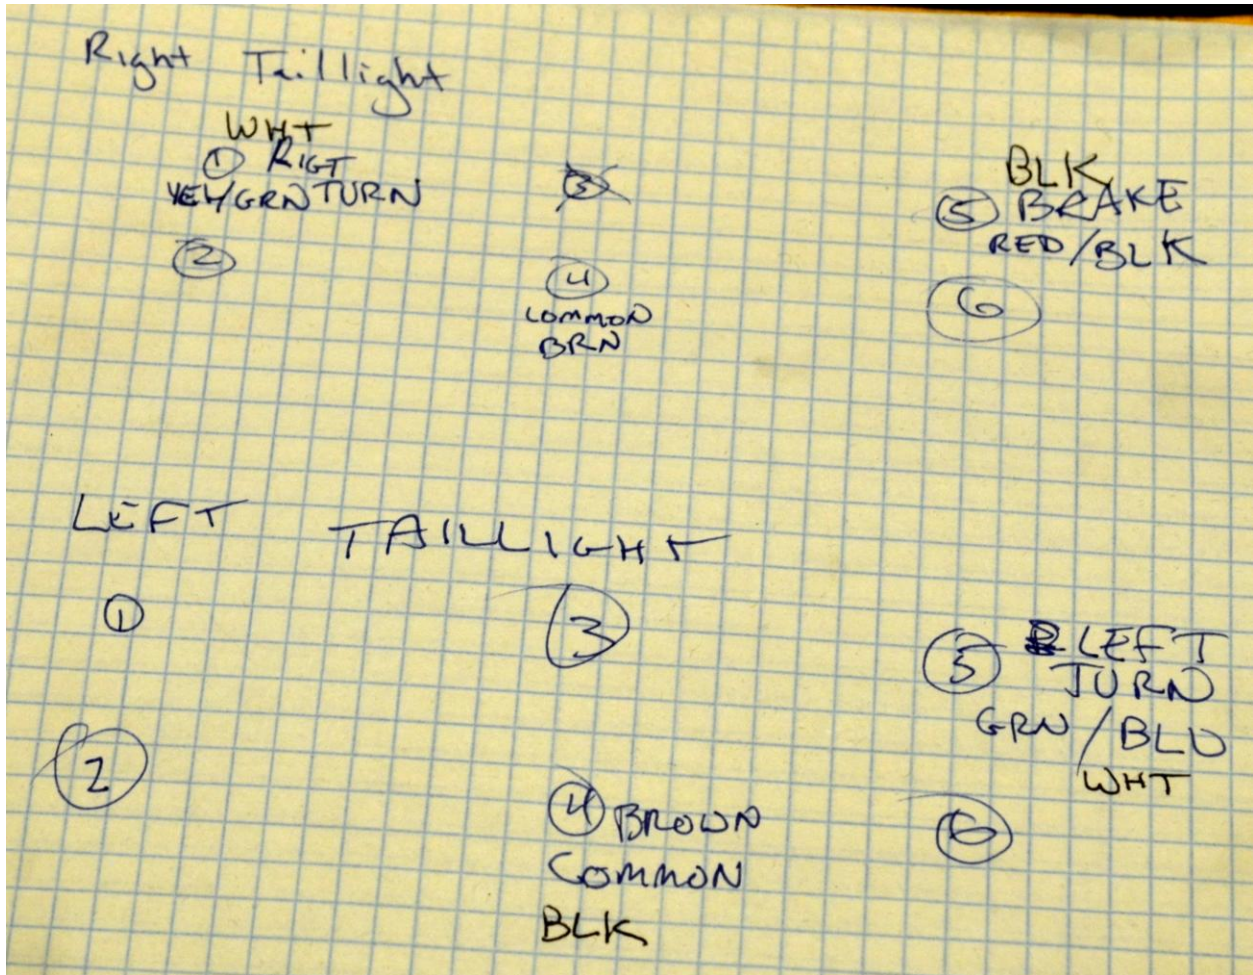 Right Taillight
WHT
① RIGT
YEL/GRN TURN
②
③
④
COMMON
BRN
BLK
⑤ BRAKE
RED/BLK
⑥
LEFT TAILLIGHT
①
②
③
④ BROWN
COMMON
BLK
⑤ LEFT
TURN
GRN/BLU
WHT
⑥